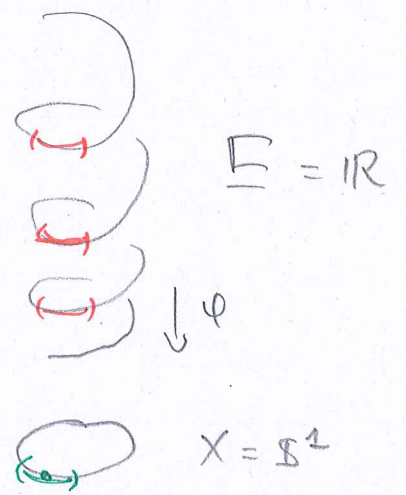 E = ℝ
φ
X = S¹